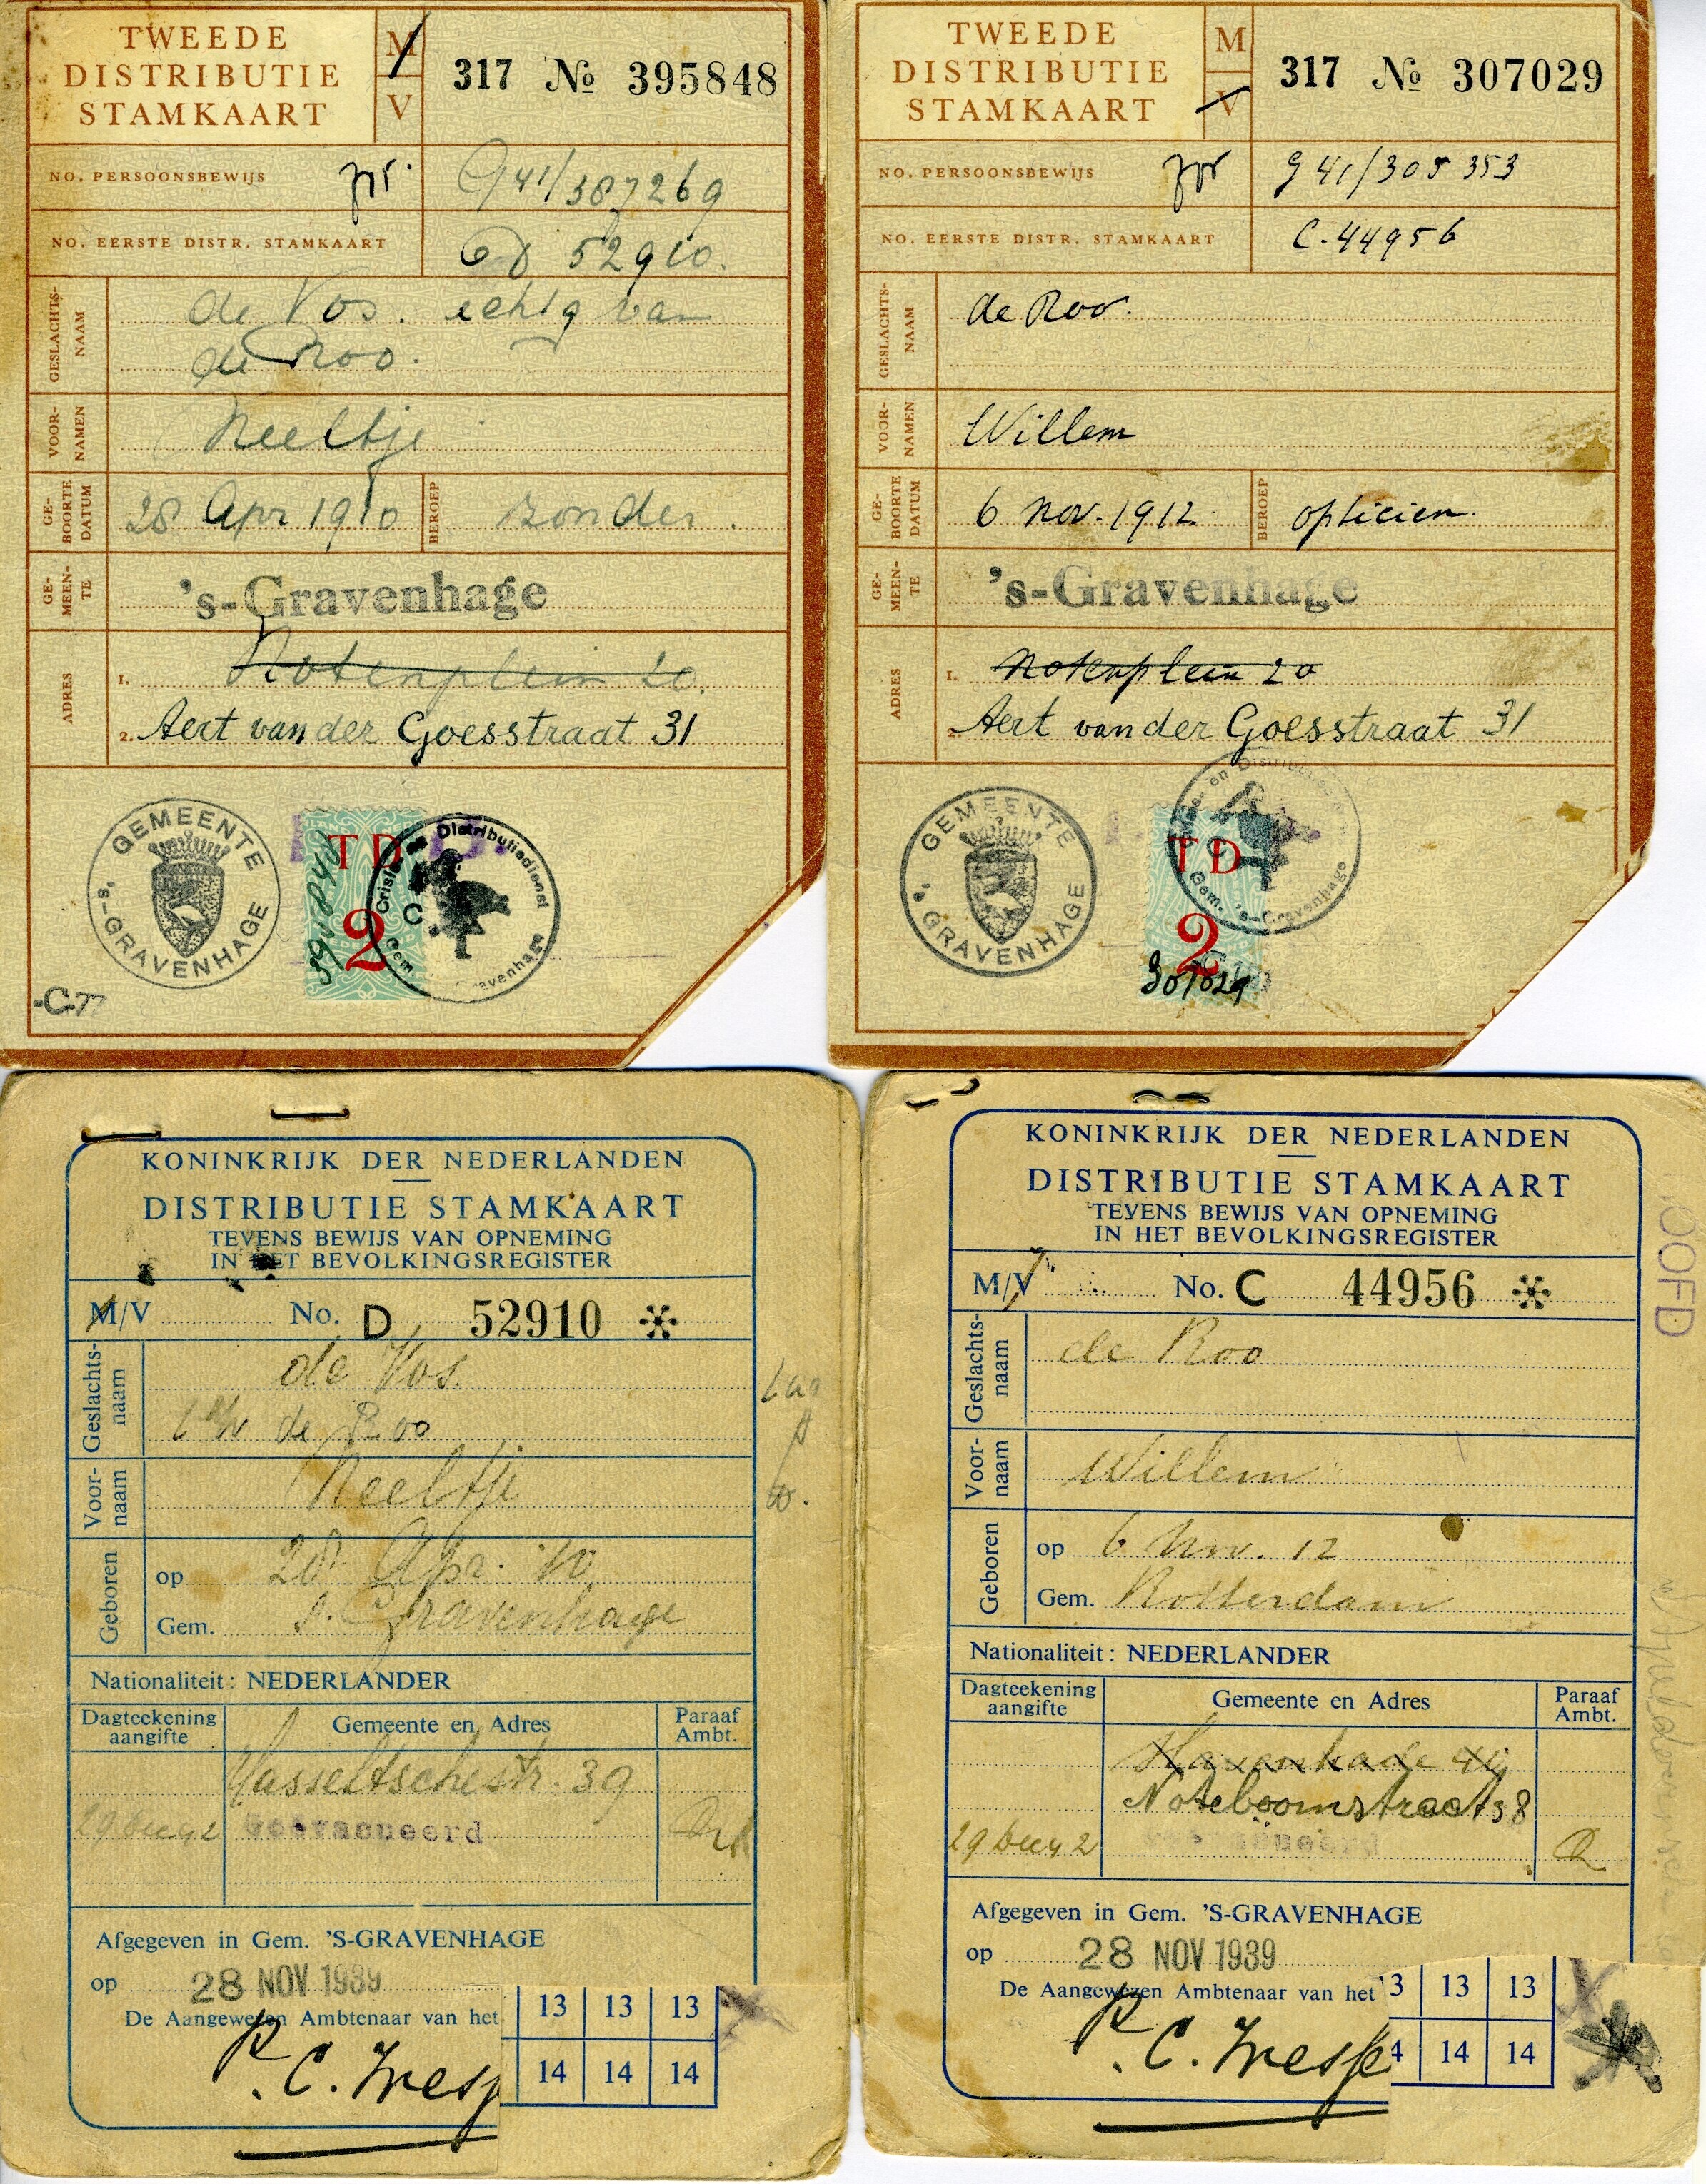 TWEEDE
DISTRIBUTIE
STAMKAART
M
V
317 No 395848
NO. PERSOONSBEWIJS
G 41/387269
NO. EERSTE DISTR. STAMKAART
D 52910.
GESLACHTS-
NAAM
de Vos. echtg van
de Roo.
VOOR-
NAMEN
Neeltje
GE-
BOORTE
DATUM
28 Apr 1910
BEROEP
zonder.
GE-
MEEN-
TE
's-Gravenhage
ADRES
1. Notenplein 20.
2. Aert van der Goesstraat 31
GEMEENTE
's-GRAVENHAGE
TD
2
395848
Distributiedienst
C
Gem.
-C-7
TWEEDE
DISTRIBUTIE
STAMKAART
M
V
317 No 307029
NO. PERSOONSBEWIJS
G 41/305353
NO. EERSTE DISTR. STAMKAART
C-44956
GESLACHTS-
NAAM
de Roo.
VOOR-
NAMEN
Willem
GE-
BOORTE
DATUM
6 Nov. 1912
BEROEP
opticien.
GE-
MEEN-
TE
's-Gravenhage
ADRES
1. Notenplein 20
2. Aert van der Goesstraat 31
GEMEENTE
's-GRAVENHAGE
en Distributiedienst
C
Gem. 's-Gravenhage
TD
2
307029
KONINKRIJK DER NEDERLANDEN
DISTRIBUTIE STAMKAART
TEVENS BEWIJS VAN OPNEMING
IN HET BEVOLKINGSREGISTER
M/V No. D 52910 *
Geslachts-
naam
de Vos.
de Roo
Voor-
naam
Neeltje
Geboren
op 28 Apr. '10
Gem. s. Gravenhage
Nationaliteit: NEDERLANDER
Dagteekening
aangifte
Gemeente en Adres
Paraaf
Ambt.
Hasseltschestr. 39
29 Dec 42 Geëvacueerd
Afgegeven in Gem. 'S-GRAVENHAGE
op 28 NOV 1939
De Aangewezen Ambtenaar van het
13 13 13
14 14 14
KONINKRIJK DER NEDERLANDEN
DISTRIBUTIE STAMKAART
TEVENS BEWIJS VAN OPNEMING
IN HET BEVOLKINGSREGISTER
M/V No. C 44956 *
Geslachts-
naam
de Roo
Voor-
naam
Willem
Geboren
op 6 Nov. 12
Gem. Rotterdam
Nationaliteit: NEDERLANDER
Dagteekening
aangifte
Gemeente en Adres
Paraaf
Ambt.
Noteboomstraat 38
29 Dec 42
Afgegeven in Gem. 'S-GRAVENHAGE
op 28 NOV 1939
De Aangewezen Ambtenaar van het
3 13 13
4 14 14
OOFD